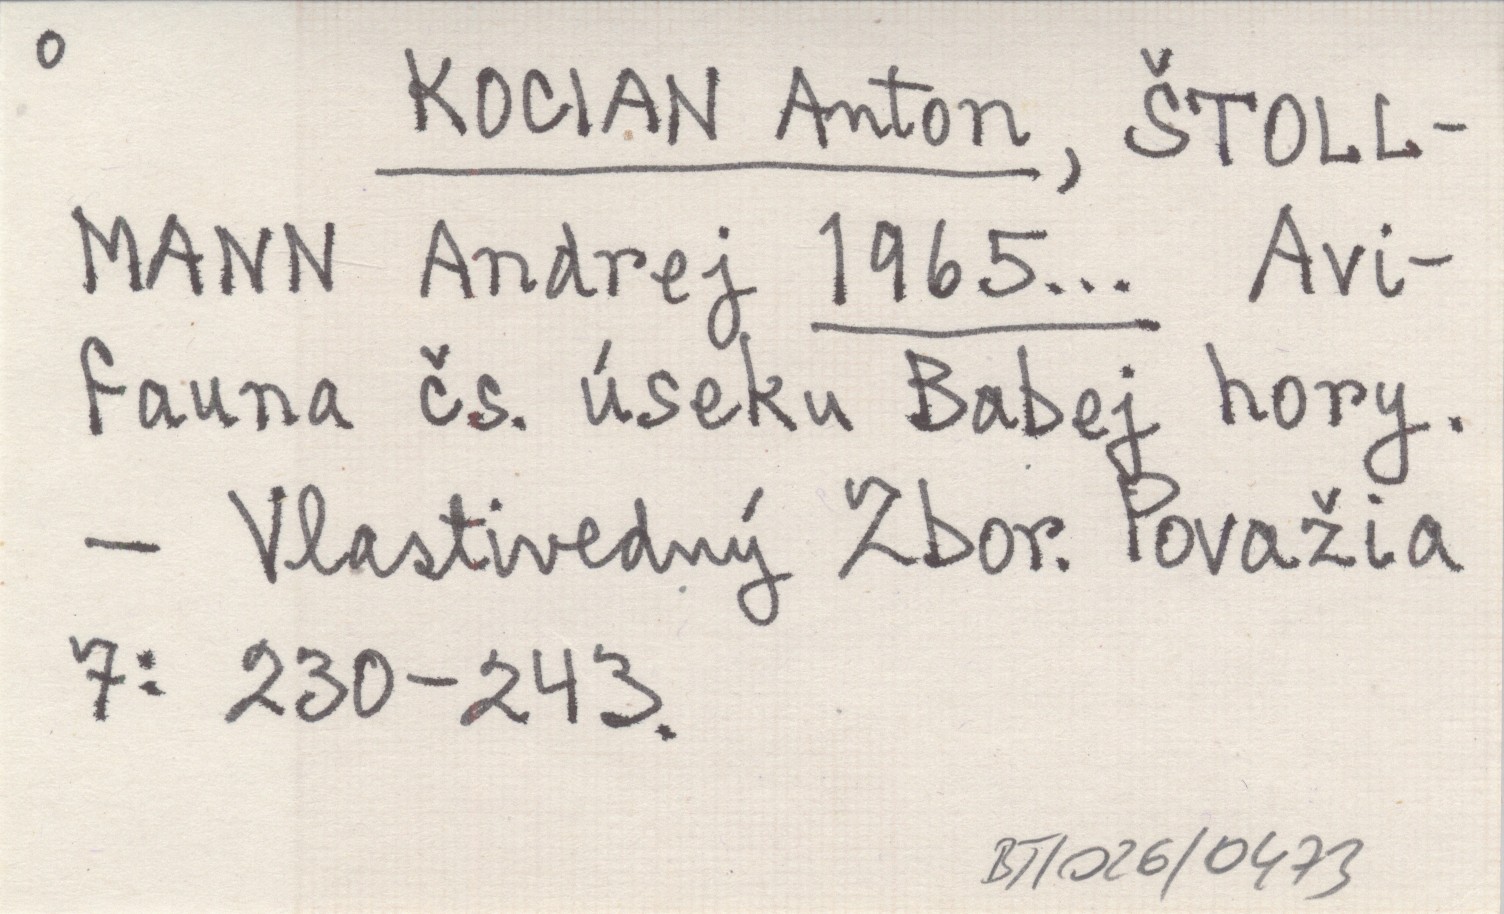 o
KOCIAN Anton, ŠTOLL-
MANN Andrej 1965... Avi-
fauna čs. úseku Babej hory.
— Vlastivedný Zbor. Považia
7: 230-243.
BT/026/0473